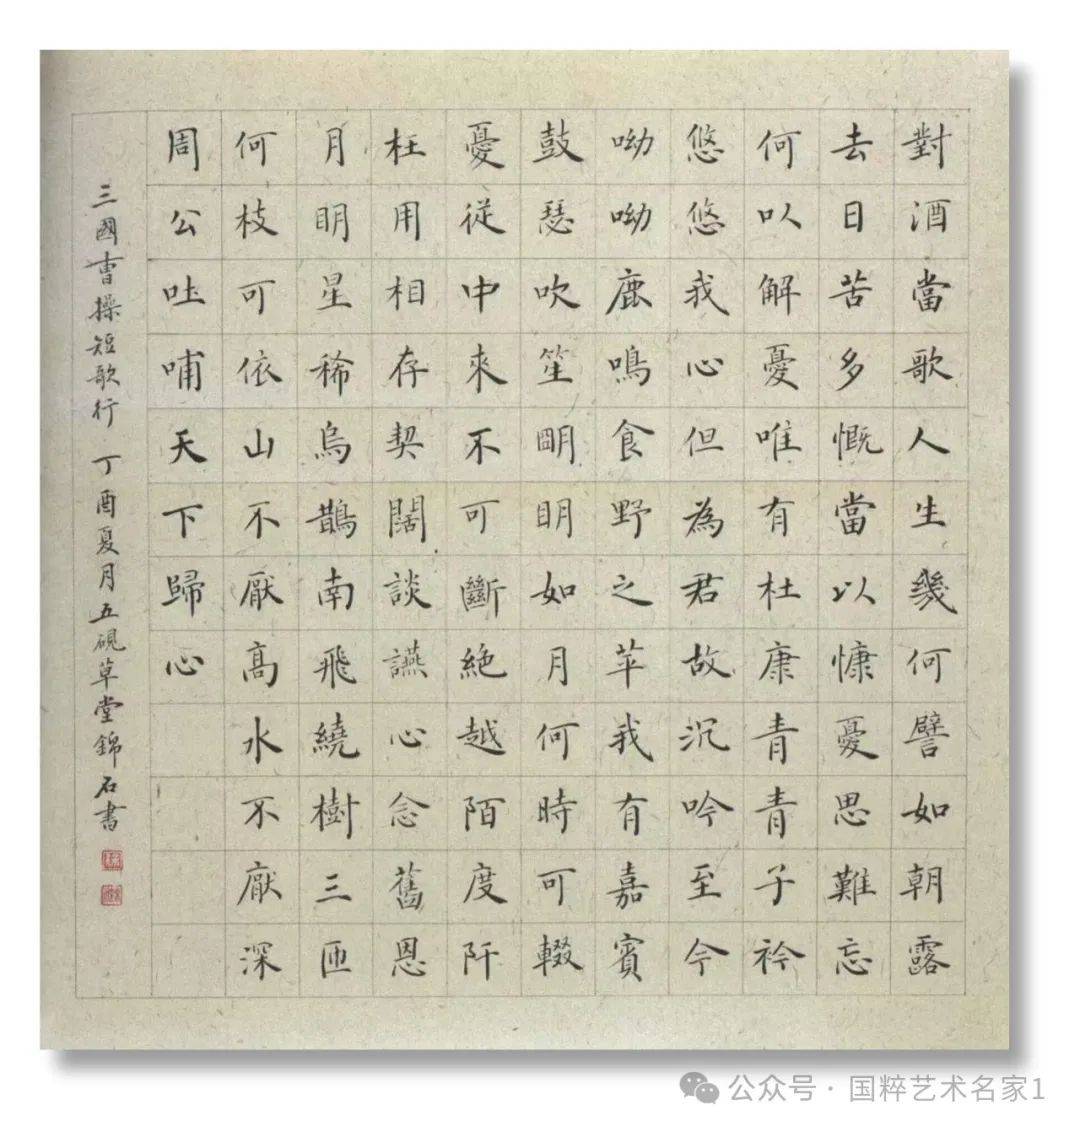 對酒當歌人生幾何譬如朝露
去日苦多慨當以慷憂思難忘
何以解憂唯有杜康青青子衿
悠悠我心但為君故沉吟至今
呦呦鹿鳴食野之苹我有嘉賓
鼓瑟吹笙朙眀如月何時可輟
憂從中來不可斷絕越陌度阡
枉用相存契闊談讌心念舊恩
月眀星稀烏鵲南飛繞樹三匝
何枝可依山不厭高水不厭深
周公吐哺天下歸心
三國曹操短歌行 丁酉夏月五硯草堂錦石書
公众号 · 国粹艺术名家1